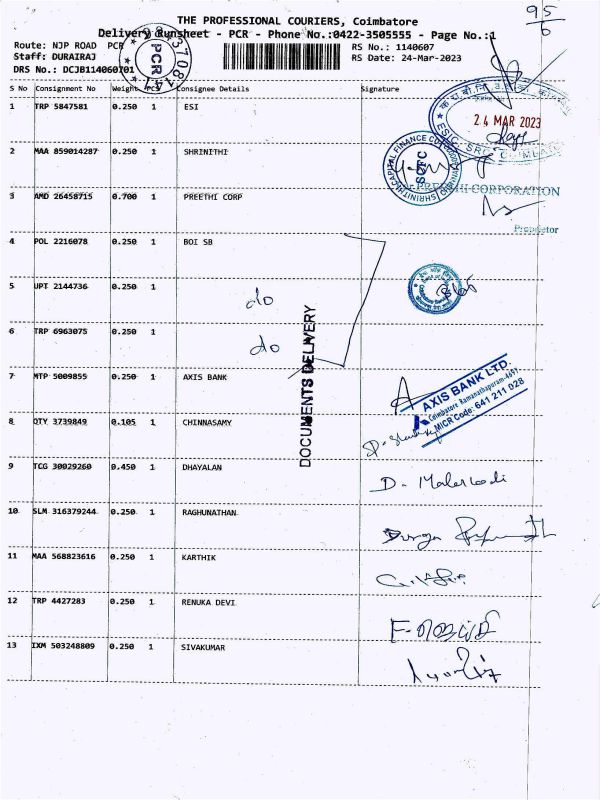 THE PROFESSIONAL COURIERS, Coimbatore
Delivery Runsheet - PCR - Phone No.:0422-3505555 - Page No.:1
95/6
Route: NJP ROAD PCR
RS No.: 1140607
Staff: DURAIRAJ
RS Date: 24-Mar-2023
DRS No.: DCJB114060701
PCR
S No Consignment No Weight PCS Consignee Details Signature
1 TRP 5847581 0.250 1 ESI
24 MAR 2023
2 MAA 859014287 0.250 1 SHRINITHI
SCFC
3 AMD 26458715 0.700 1 PREETHI CORP
PREETHI CORPORATION
Proprietor
4 POL 2216078 0.250 1 BOI SB
5 UPT 2144736 0.250 1
do
6 TRP 6963075 0.250 1
do
DOCUMENTS DELIVERY
7 MTP 5009855 0.250 1 AXIS BANK
AXIS BANK LTD.
Coimbatore Ramanathapuram-4691
MICR Code: 641 211 028
8 QTY 3739849 0.105 1 CHINNASAMY
9 TCG 30029260 0.450 1 DHAYALAN
10 SLM 316379244 0.250 1 RAGHUNATHAN
11 MAA 568823616 0.250 1 KARTHIK
12 TRP 4427283 0.250 1 RENUKA DEVI
13 IXM 503248809 0.250 1 SIVAKUMAR